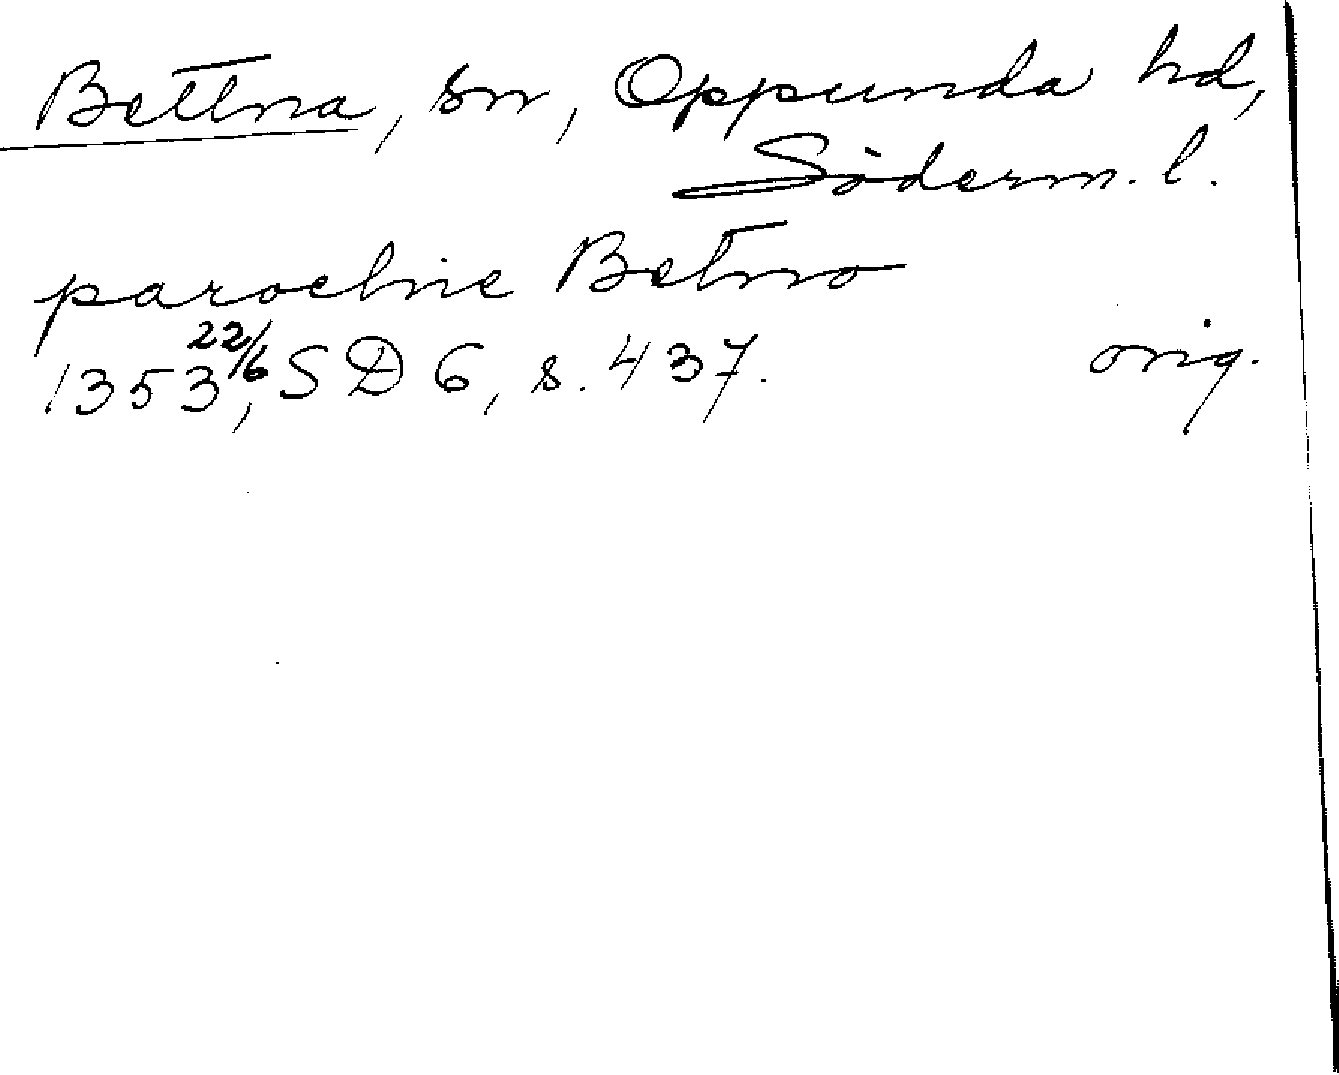 Bettna, sn, Oppunda hd,
Söderm. l.
parochie Betno
1353 22/6, SD 6, s. 437. orig.